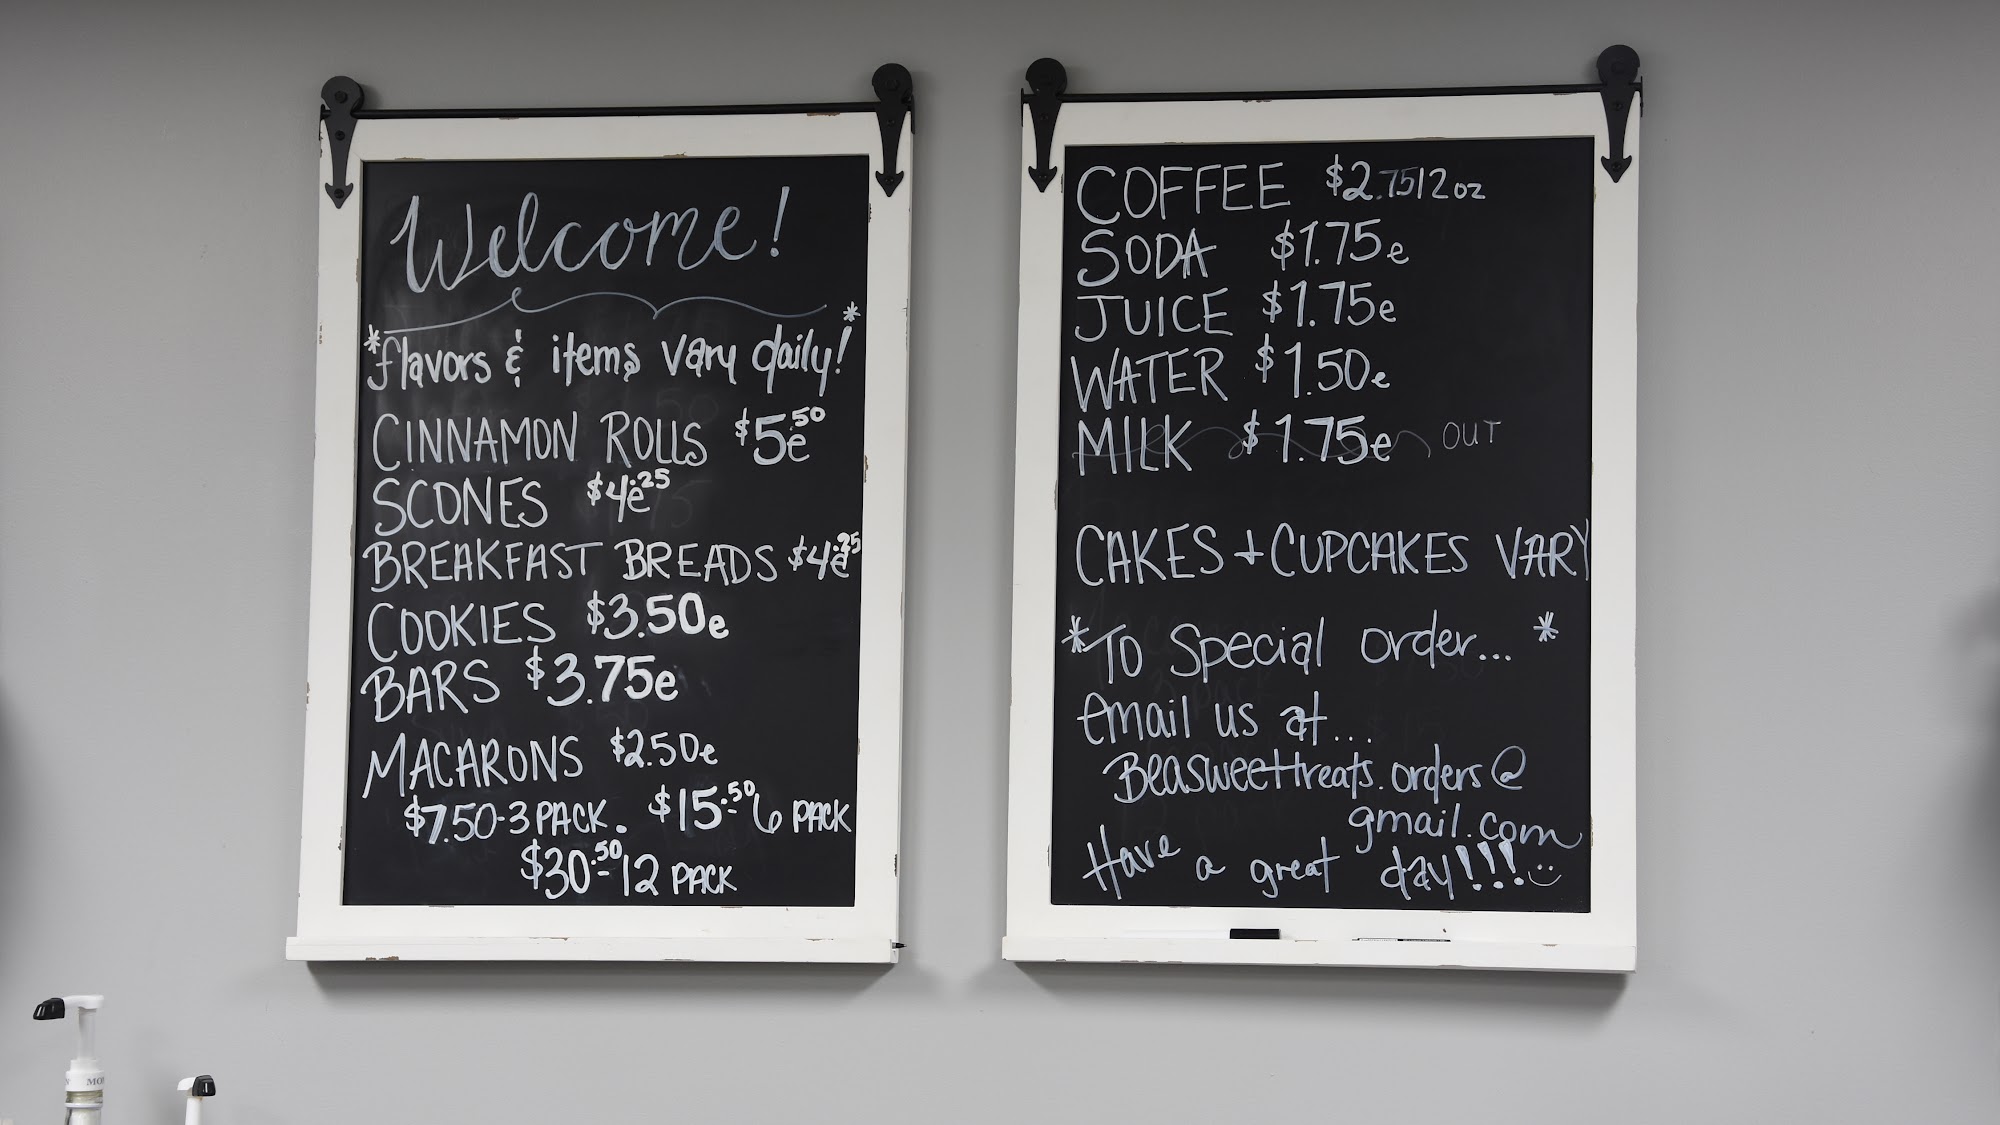 Welcome!
*flavors & items vary daily!*
CINNAMON ROLLS $5.50e
SCONES $4.25e
BREAKFAST BREADS $4.25e
COOKIES $3.50e
BARS $3.75e
MACARONS $2.50e
$7.50-3 PACK. $15.50-6 PACK
$30.50-12 PACK
COFFEE $2.75 12oz
SODA $1.75e
JUICE $1.75e
WATER $1.50e
MILK $1.75e OUT
CAKES + CUPCAKES VARY
*To Special order...*
email us at...
Beasweettreats.orders@
gmail.com
Have a great day!!!